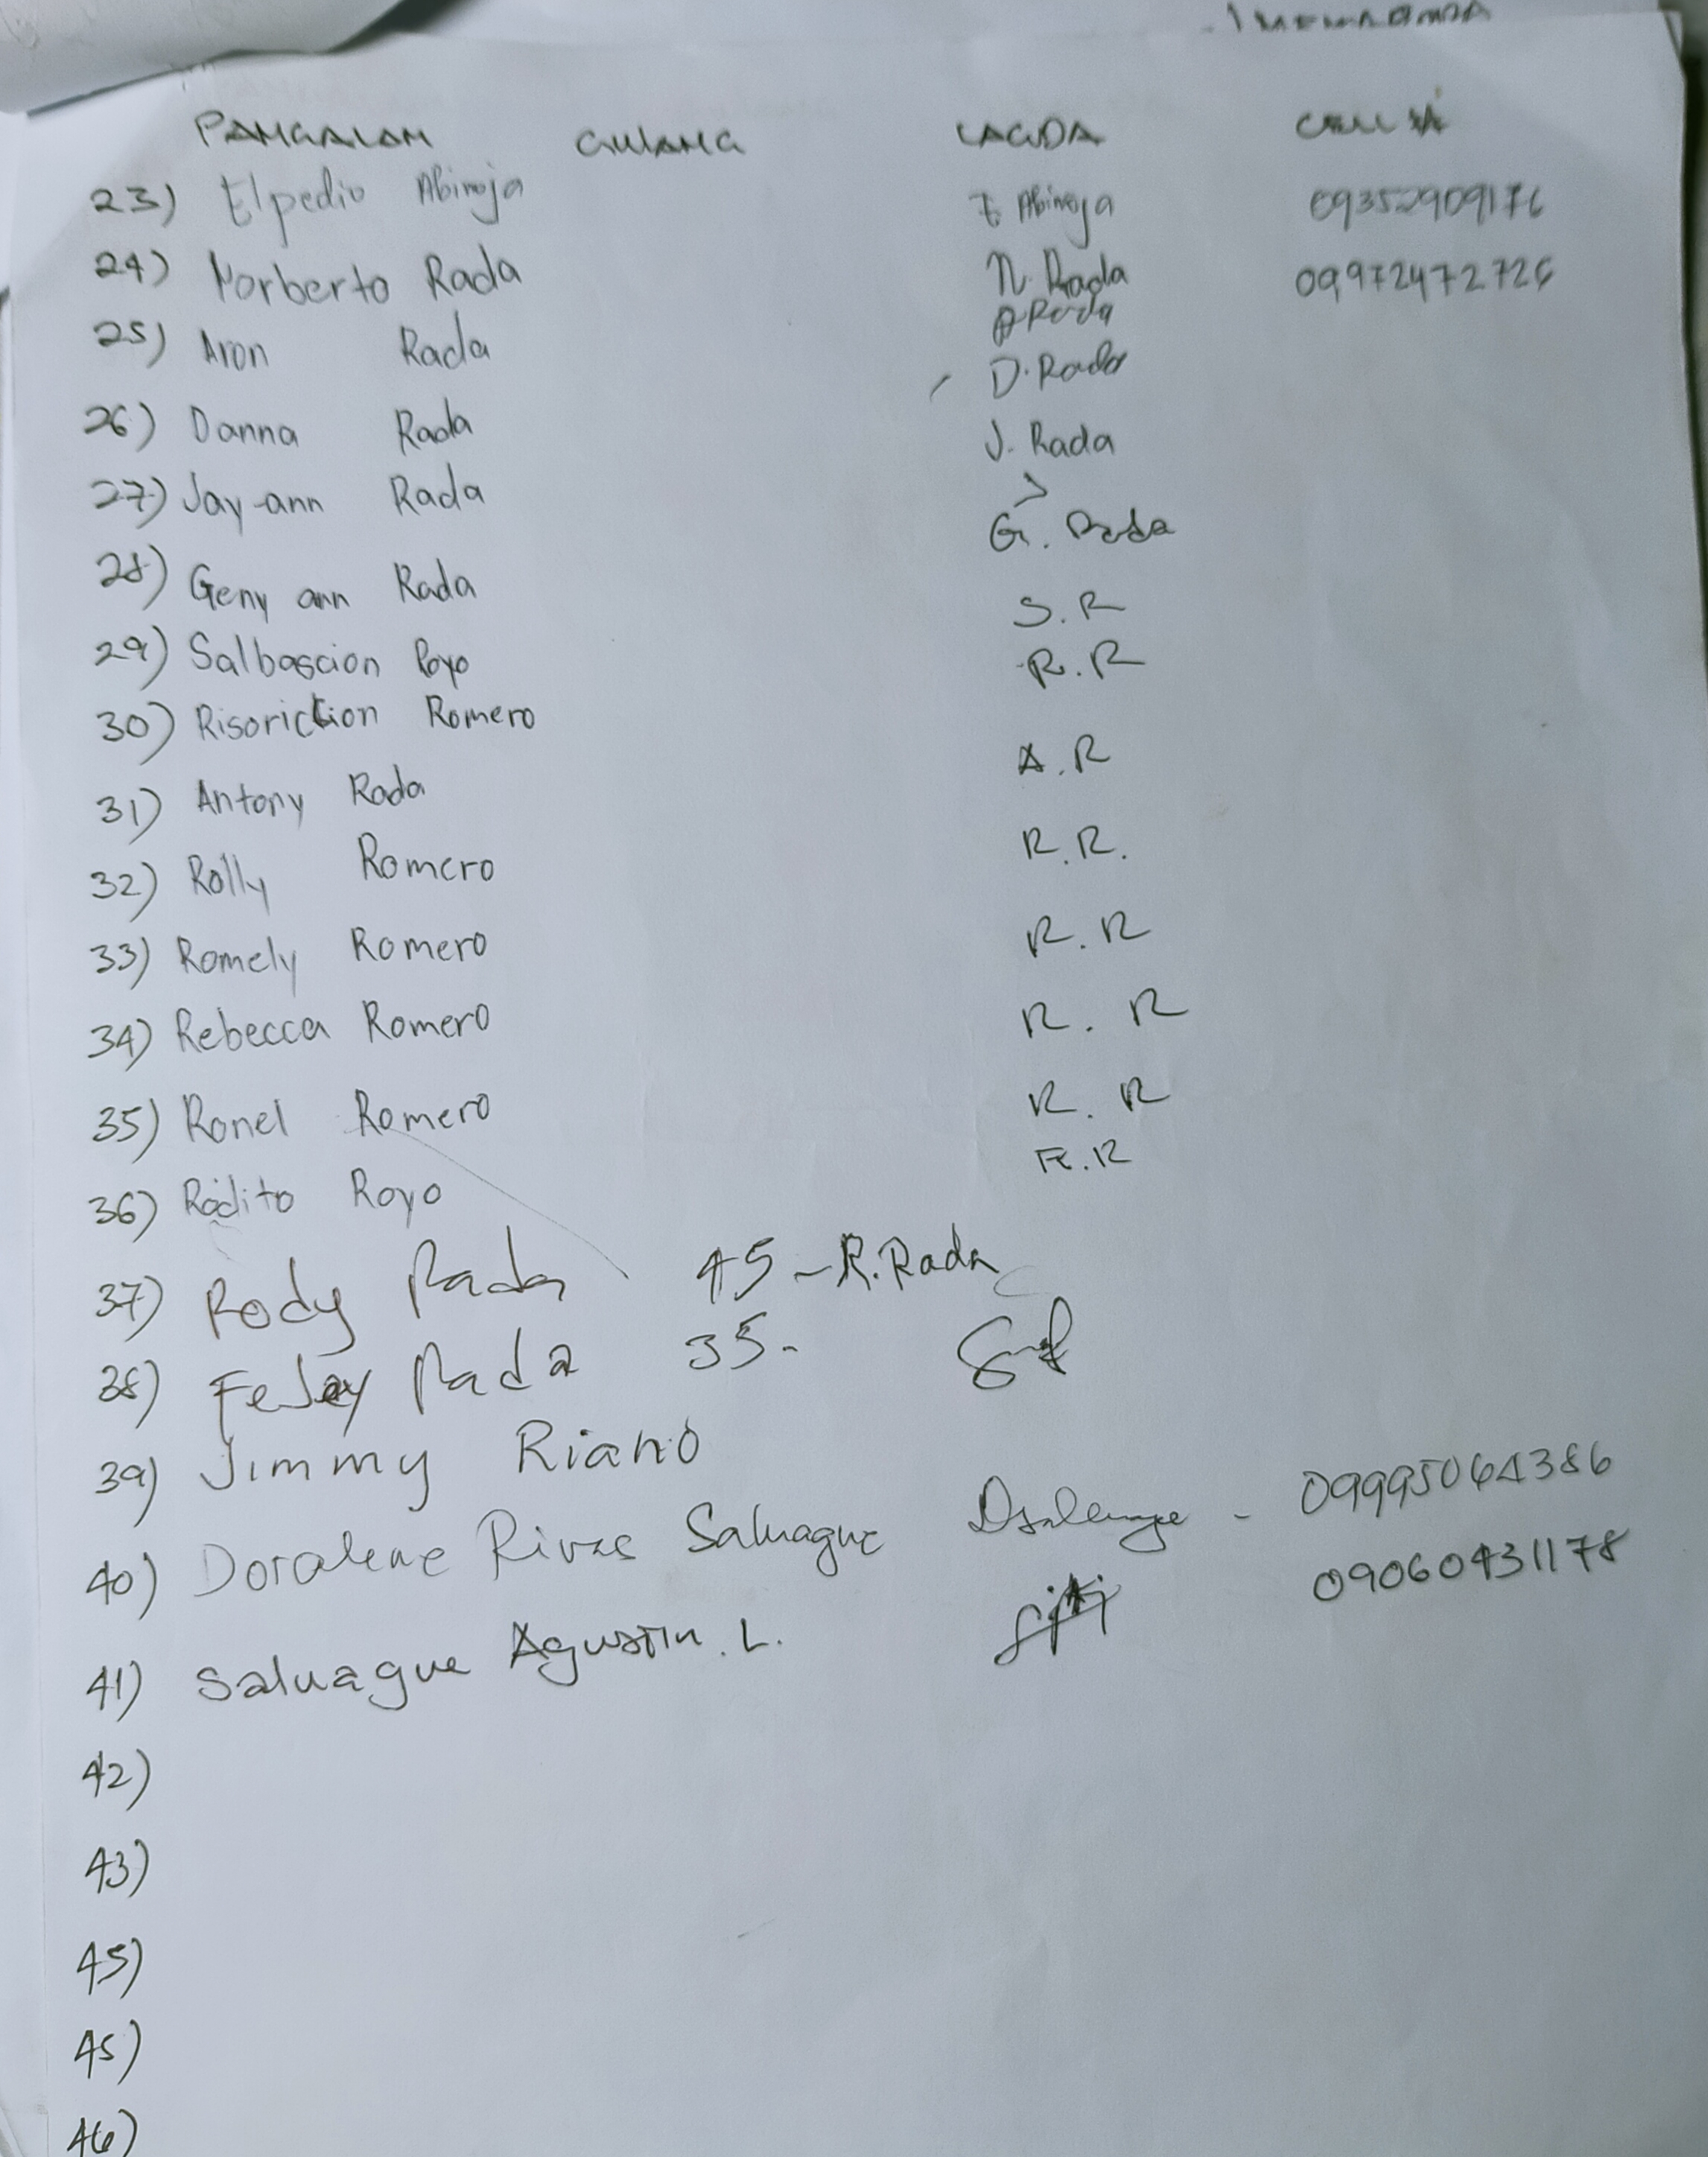 PANGALAN GULANG LAGDA CELL #
23) Elpedio Abinoja E. Abinoja 09352909176
24) Norberto Rada N. Rada 09972472726
25) Aron Rada A Rada
26) Danna Rada D. Rada
27) Jay-ann Rada J. Rada
28) Geny ann Rada G. Rada
29) Salbascion Royo S.R
30) Risoriction Romero R.R
31) Antony Rada A.R
32) Rolly Romero R.R.
33) Romely Romero R.R
34) Rebecca Romero R.R
35) Ronel Romero R.R
36) Rodito Royo R.R
37) Rody Rada 45 - R.Rada
38) FeJay Rada 35-
39) Jimmy Riano
40) Doralene Rivas Saluague - 09995064386
41) Saluague Agustin. L. 09060431178
42)
43)
45)
45)
46)